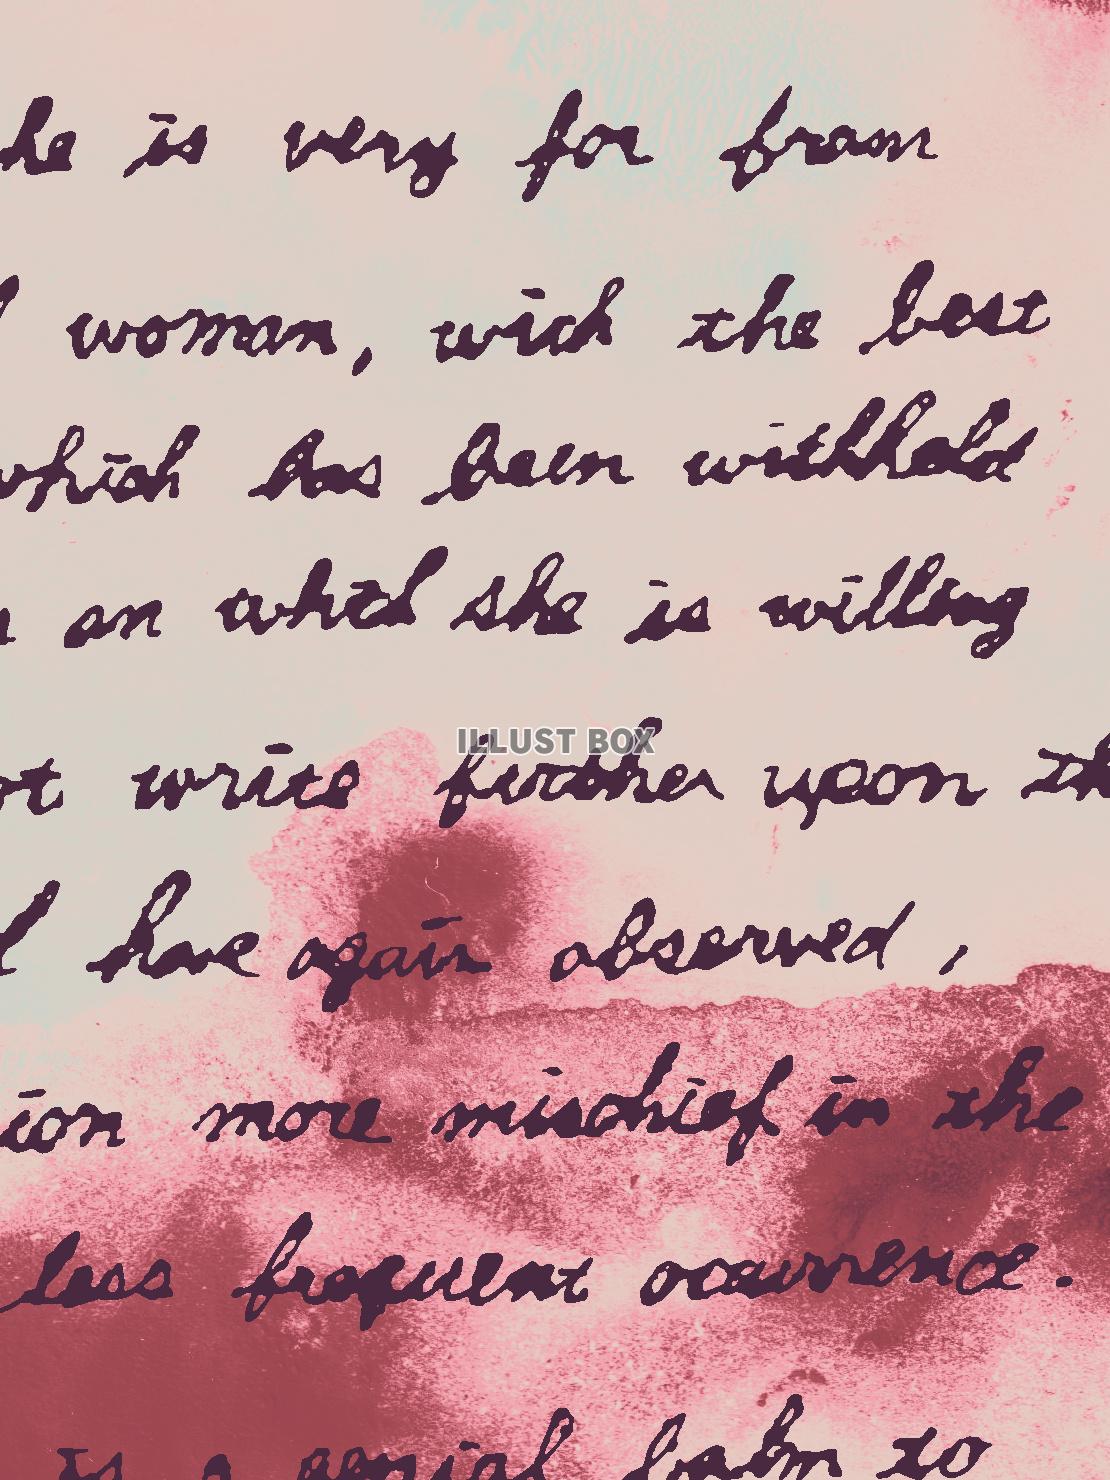 he is very far from
woman, with the best
which has been withheld
an which she is willing
write further upon
have again observed,
ion more mischief in the
less frequent occurrence.
is a genial balm to
ILLUST BOX